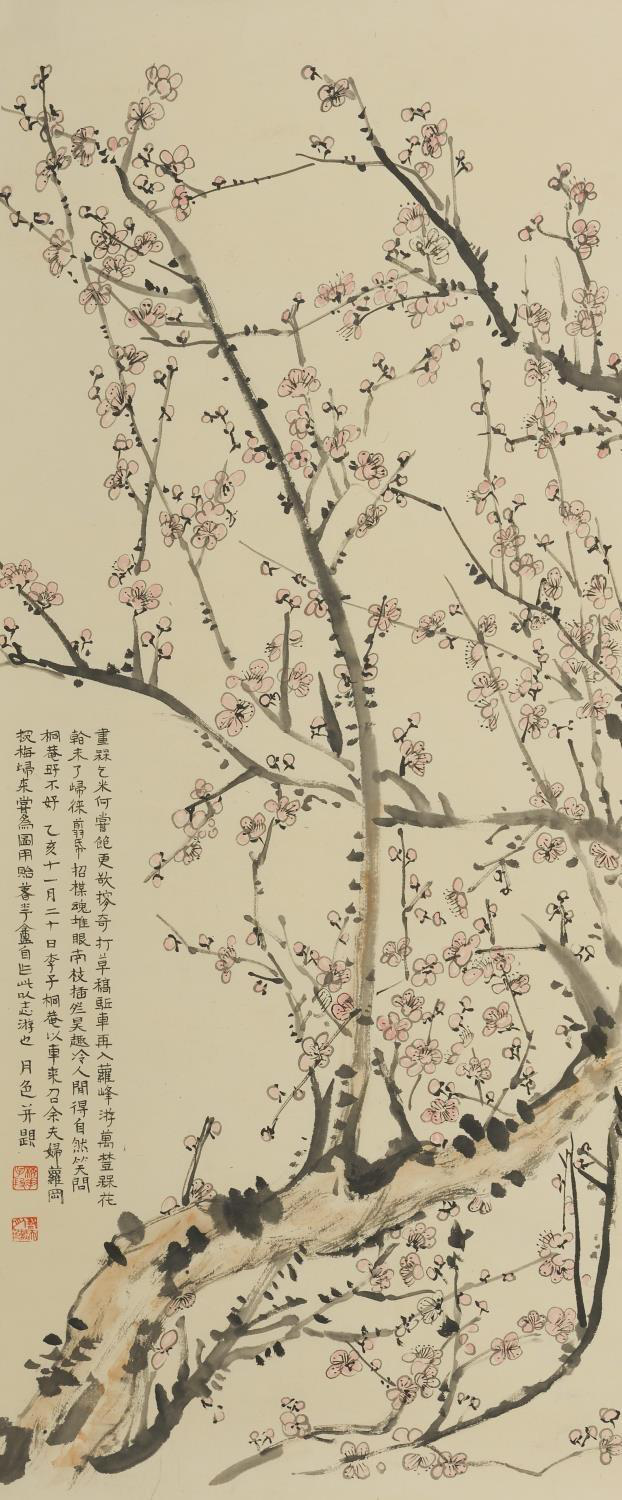 畫槑乞米何嘗飽更欲搜奇打草稿駈車再入蘿峰游萬楚槑花
船未了歸徠翦帋招槑魂堆眼南枝插尒昊趣冷人間得自然笑問
桐菴好不好 乙亥十一月二十日李子桐菴以車來召余夫婦蘿岡
探梅歸來嘗為圖用貽暮亭盦自作此以志游也 月色并題